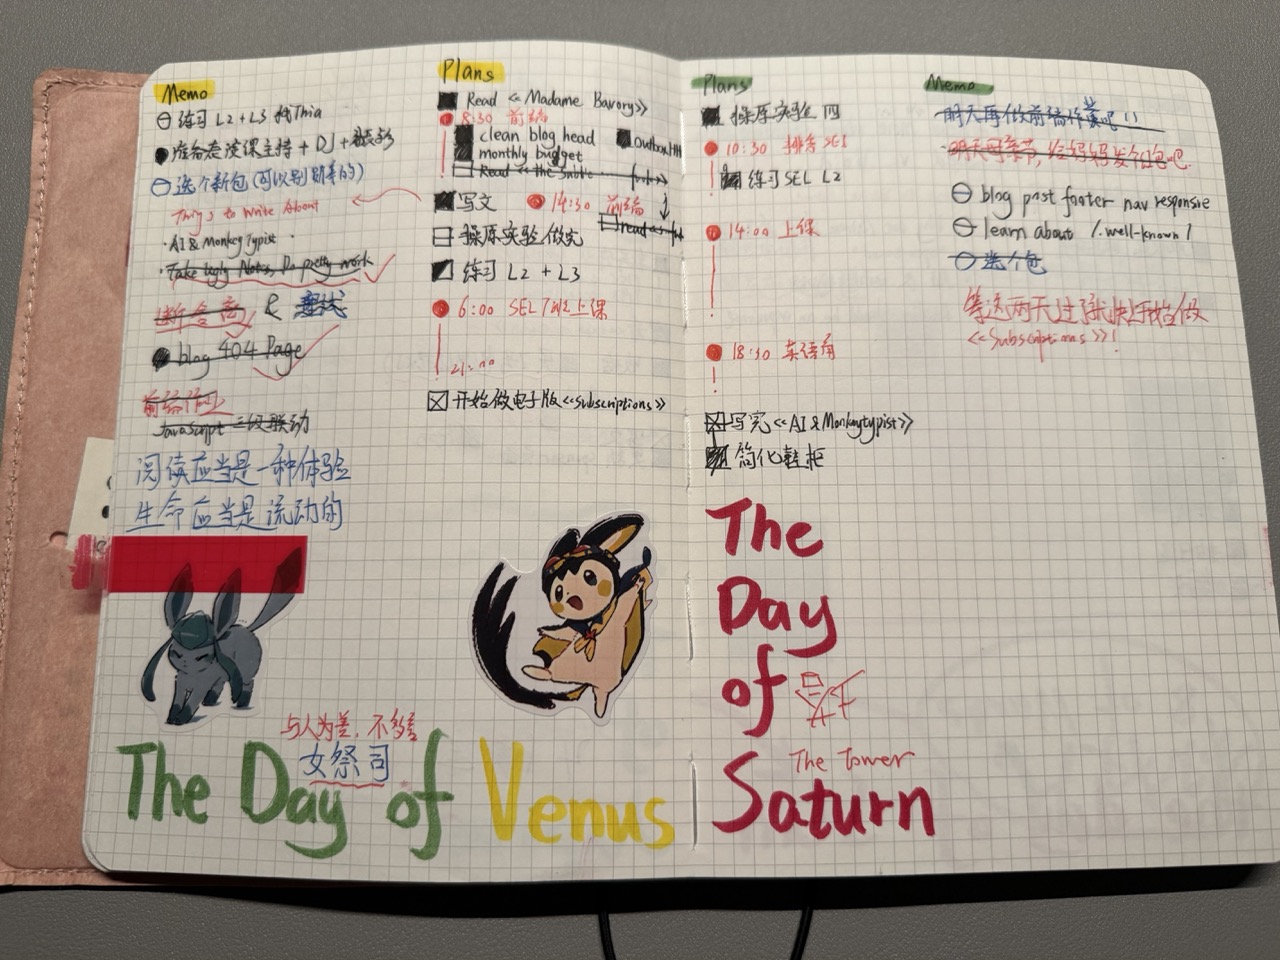 Memo
练习 L2 + L3 找Thia
准备表演课主持 + DJ +
选个新包 (可以别别着的)
Things to Write About
· AI & MonkeyTypist ·
· Take Ugly Notes, Do pretty work
断舍离 &
blog 404 Page
前端作业
JavaScript 三级联动
阅读应当是一种体验
生命应当是流动的
与人为善, 不多善
女祭司
The Day of Venus
Plans
Read << Madame Bavory>>
8:30 前端
clean blog head
monthly budget
Read << the
写文
14:30 前端
read
操原实验做完
练习 L2 + L3
6:00 SEL 7班上课
21:00
开始做电子版<<Subscriptions>>
Plans
操原实验 四
10:30 排考 SEL
练习 SEL L2
14:00 上课
18:30 英语角
写完 <<AI & Monkeytypist>>
简化鞋柜
The
Day
of
The tower
Saturn
Memo
明天再做前端作业吧!!
· 明天母亲节, 给妈妈发个红包吧.
blog post footer nav responsive
learn about /.well-known/
选个包
等这两天过
开始做
<<Subscriptions>>!